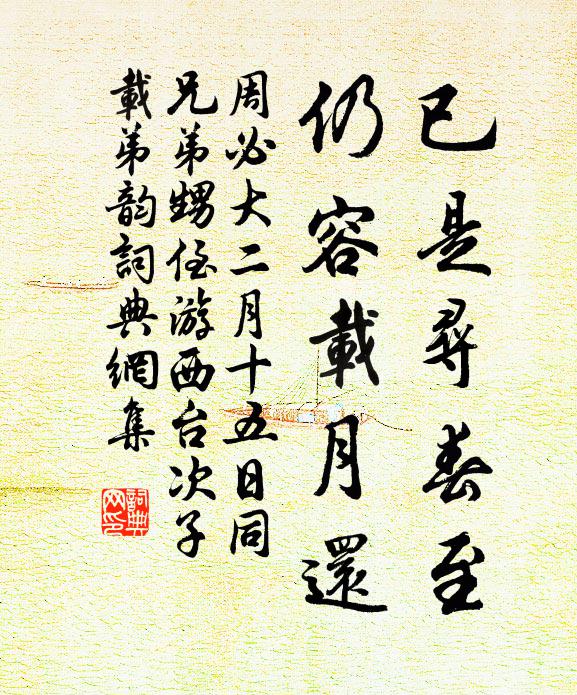 已是尋春至
仍容載月還
周必大二月十五日同
兄弟甥侄游西台次子
載弟韵詞典網集
詞典
网印